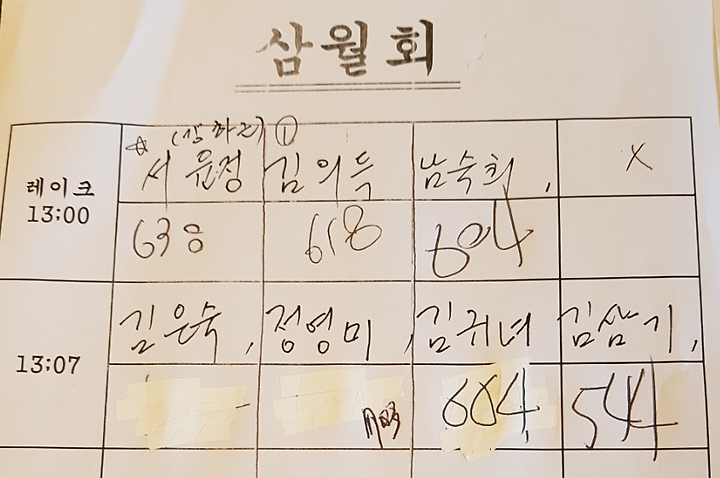 삼월회
①
레이크 13:00
서윤정 김의득 남숙희, X
638 618 604
13:07
김은숙, 정영미, 김귀녀 김삼기,
604 544